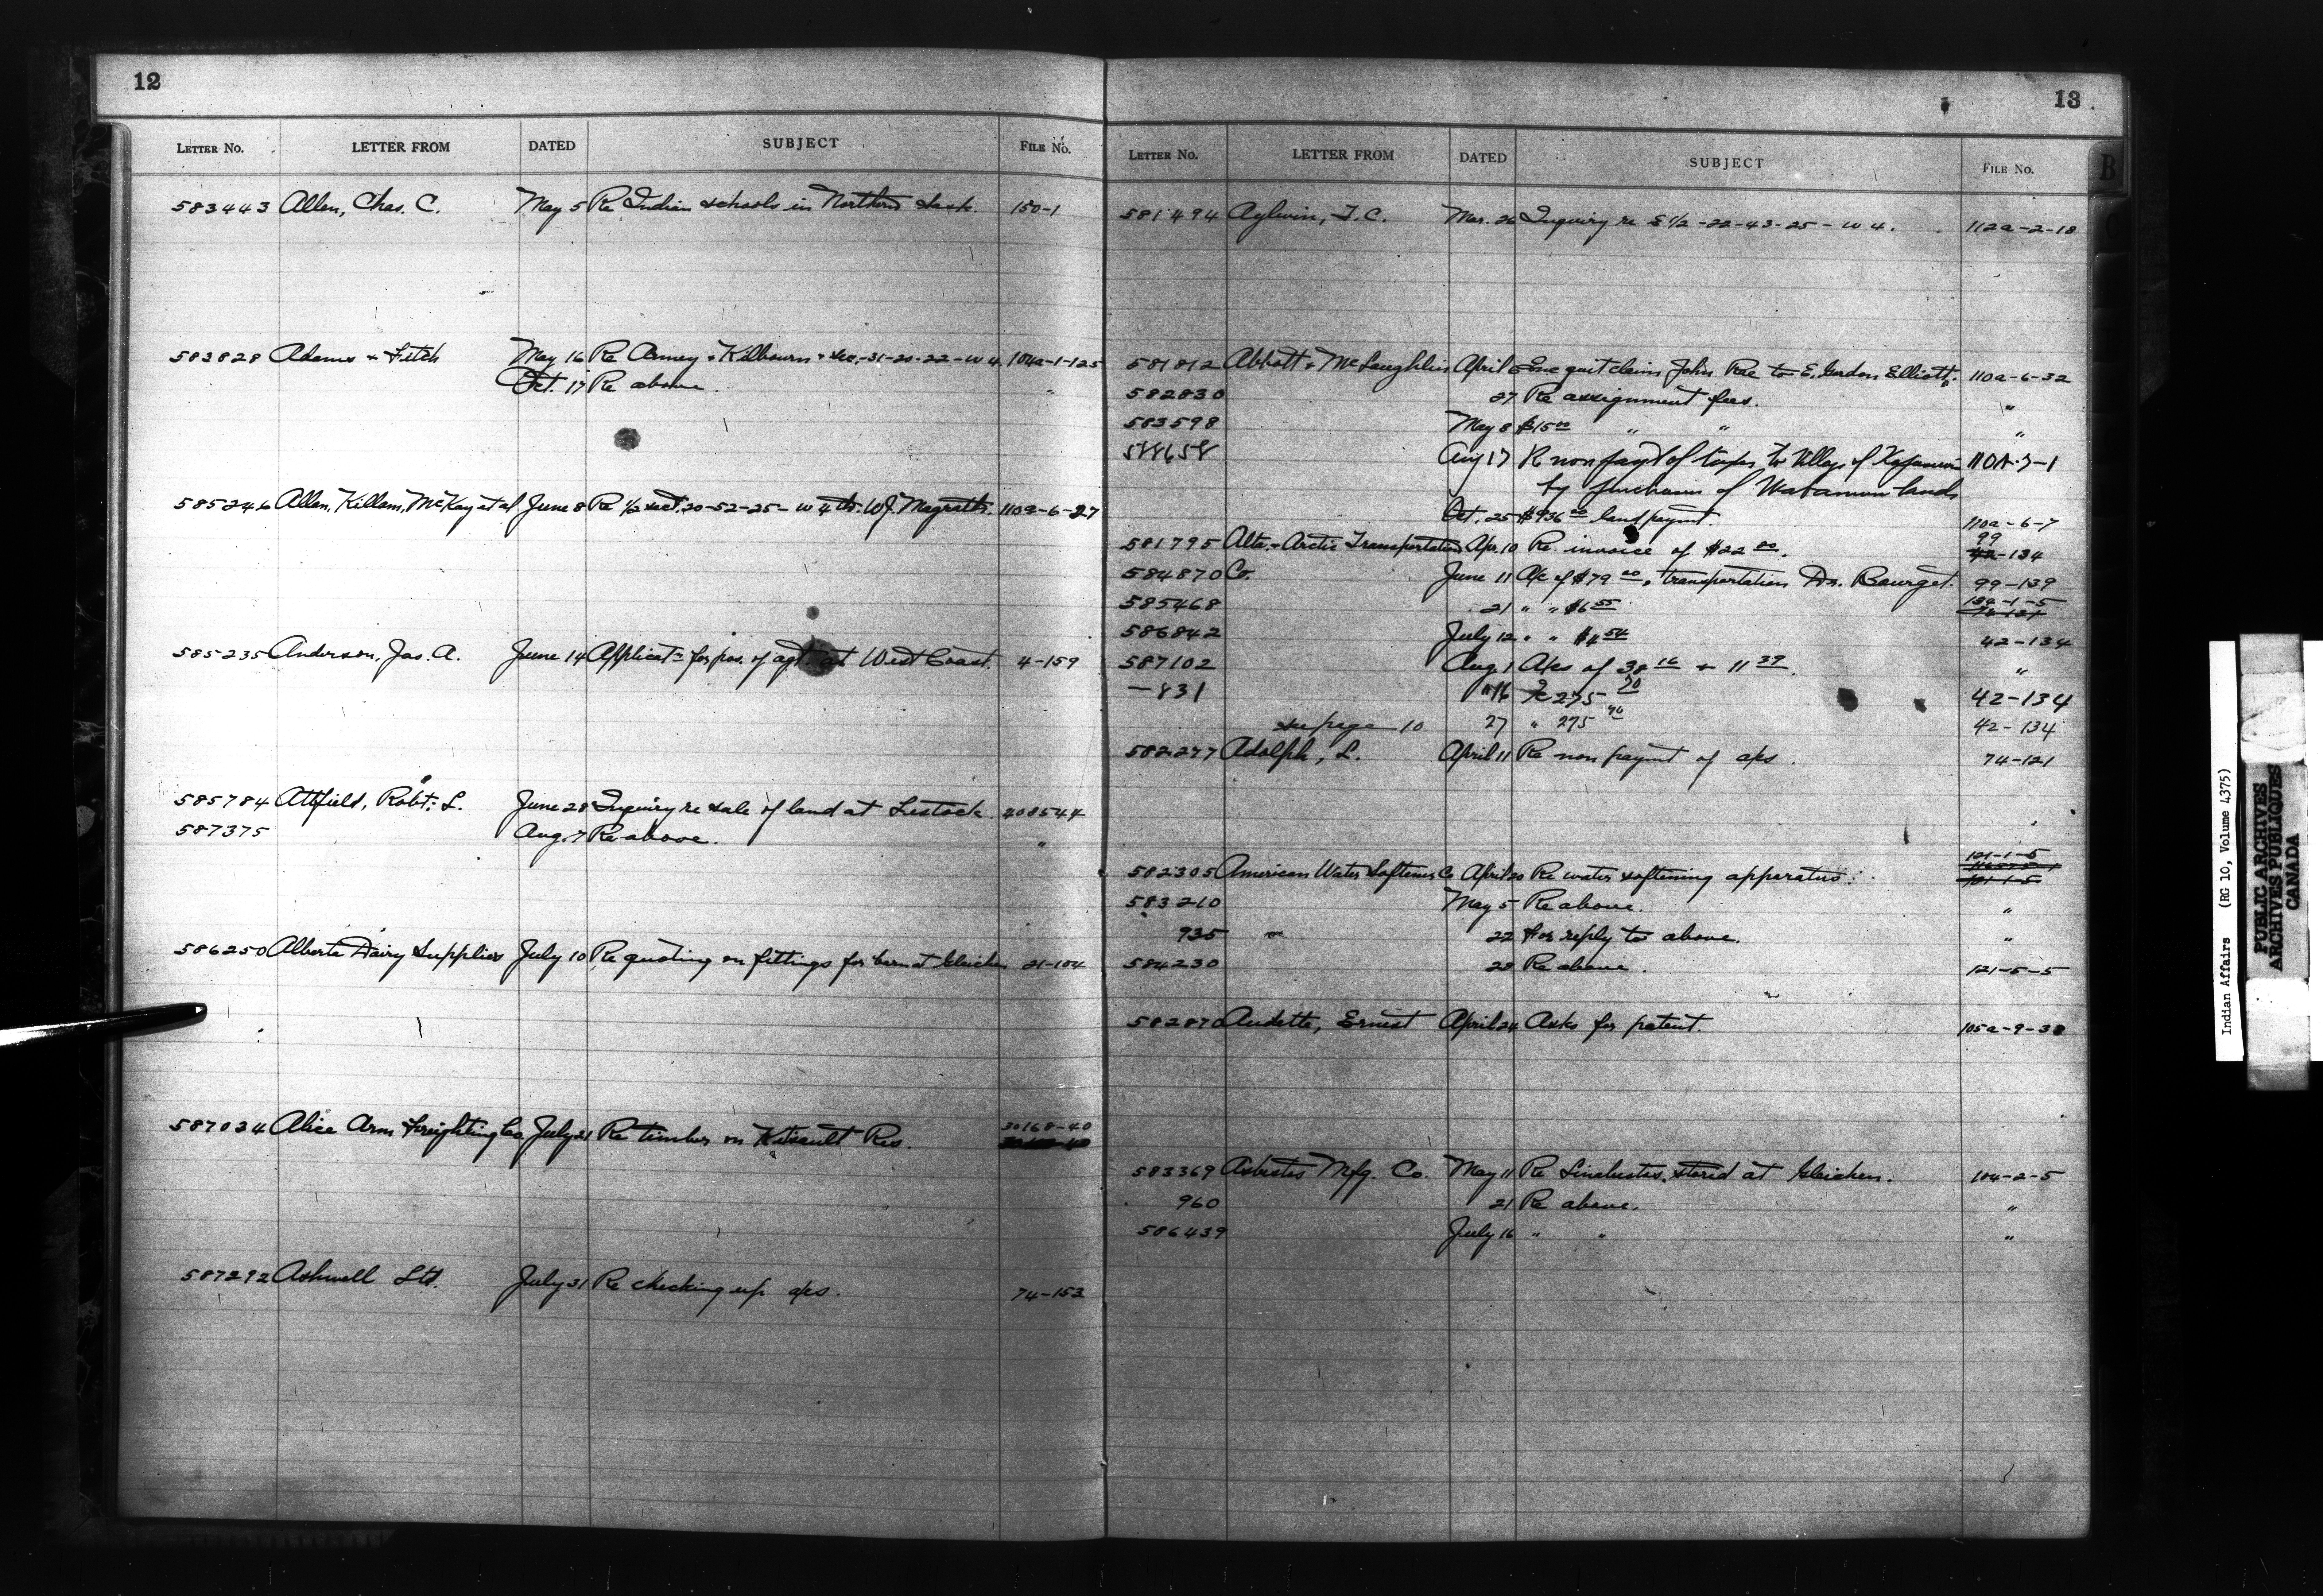 12
LETTER NO. LETTER FROM DATED SUBJECT FILE NO.
583443 Allen, Chas. C. May 5 Re Indian schools in Northern Sask. 150-1
583828 Adams & Fitch May 16 Re Amey & Kilbourn & sec.-31-20-22-W 4. 104a-1-125
Oct. 17 Re above. "
585246 Allen, Killam, McKay et al June 8 Re 1/2 sect. 20-52-25-W 4th. W.J. Magrath. 110a-6-27
585235 Anderson, Jas. A. June 14 Applicatn for pos. of agt. at West Coast. 4-159
585784 Attfield, Robt. L. June 28 Inquiry re sale of land at Lestock. 408544
587375 Aug. 7 Re above. "
586250 Alberta Dairy Supplies July 10 Re quoting on fittings for barn at Gleichen 21-104
587034 Alice Arm Freighting Co July 21 Re timber on Kitsault Res. 30168-40
587292 Ashwell Ltd. July 31 Re checking up a/cs. 74-153
13
LETTER NO. LETTER FROM DATED SUBJECT FILE NO.
B
581494 Aylwin, T. C. Mar. 26 Inquiry re S 1/2-22-43-25-W 4. 112a-2-18
581812 Abbott & McLaughlin April 6 Enc quit claim John Rae to E. Gordon Elliott. 110a-6-32
582830 27 Re assignment fees. "
583598 May 8 $15.00 " " "
588658 Aug 17 Re non payt of taxes to Village of Kapasiwin 110A-7-1
by purchasers of Wabamun lands
Oct. 25 $936.00 land paymt. 110a-6-7
581795 Alta. & Arctic Transportation Apr. 10 Re. invoice of $22.00. 99 42-134
584870 Co. June 11 A/c of $79.00, transportation Dr. Bourget. 99-139
585468 21 " " $6.55 139-1-5
586842 July 12 " " $4.54 42-134
587102 Aug. 1 A/cs of 38.16 + 11.39. "
-831 " 16 " 275.70 42-134
see page 10 27 " 275.70 42-134
582277 Adolph, L. April 11 Re non paymt of a/cs. 74-121
121-1-5
582305 American Water Softener Co April 20 Re water softening apparatus. 121-1-5
583210 May 5 Re above. "
935 22 For reply to above. "
584230 28 Re above. 121-5-5
582870 Audette, Ernest April 24 Asks for patent. 105a-9-38
583369 Asbestos Mfg. Co. May 11 Re Linabestos, stored at Gleichen. 104-2-5
960 21 Re above. "
586439 July 16 " " "
Indian Affairs (RG 10, Volume 4375)
PUBLIC ARCHIVES
ARCHIVES PUBLIQUES
CANADA